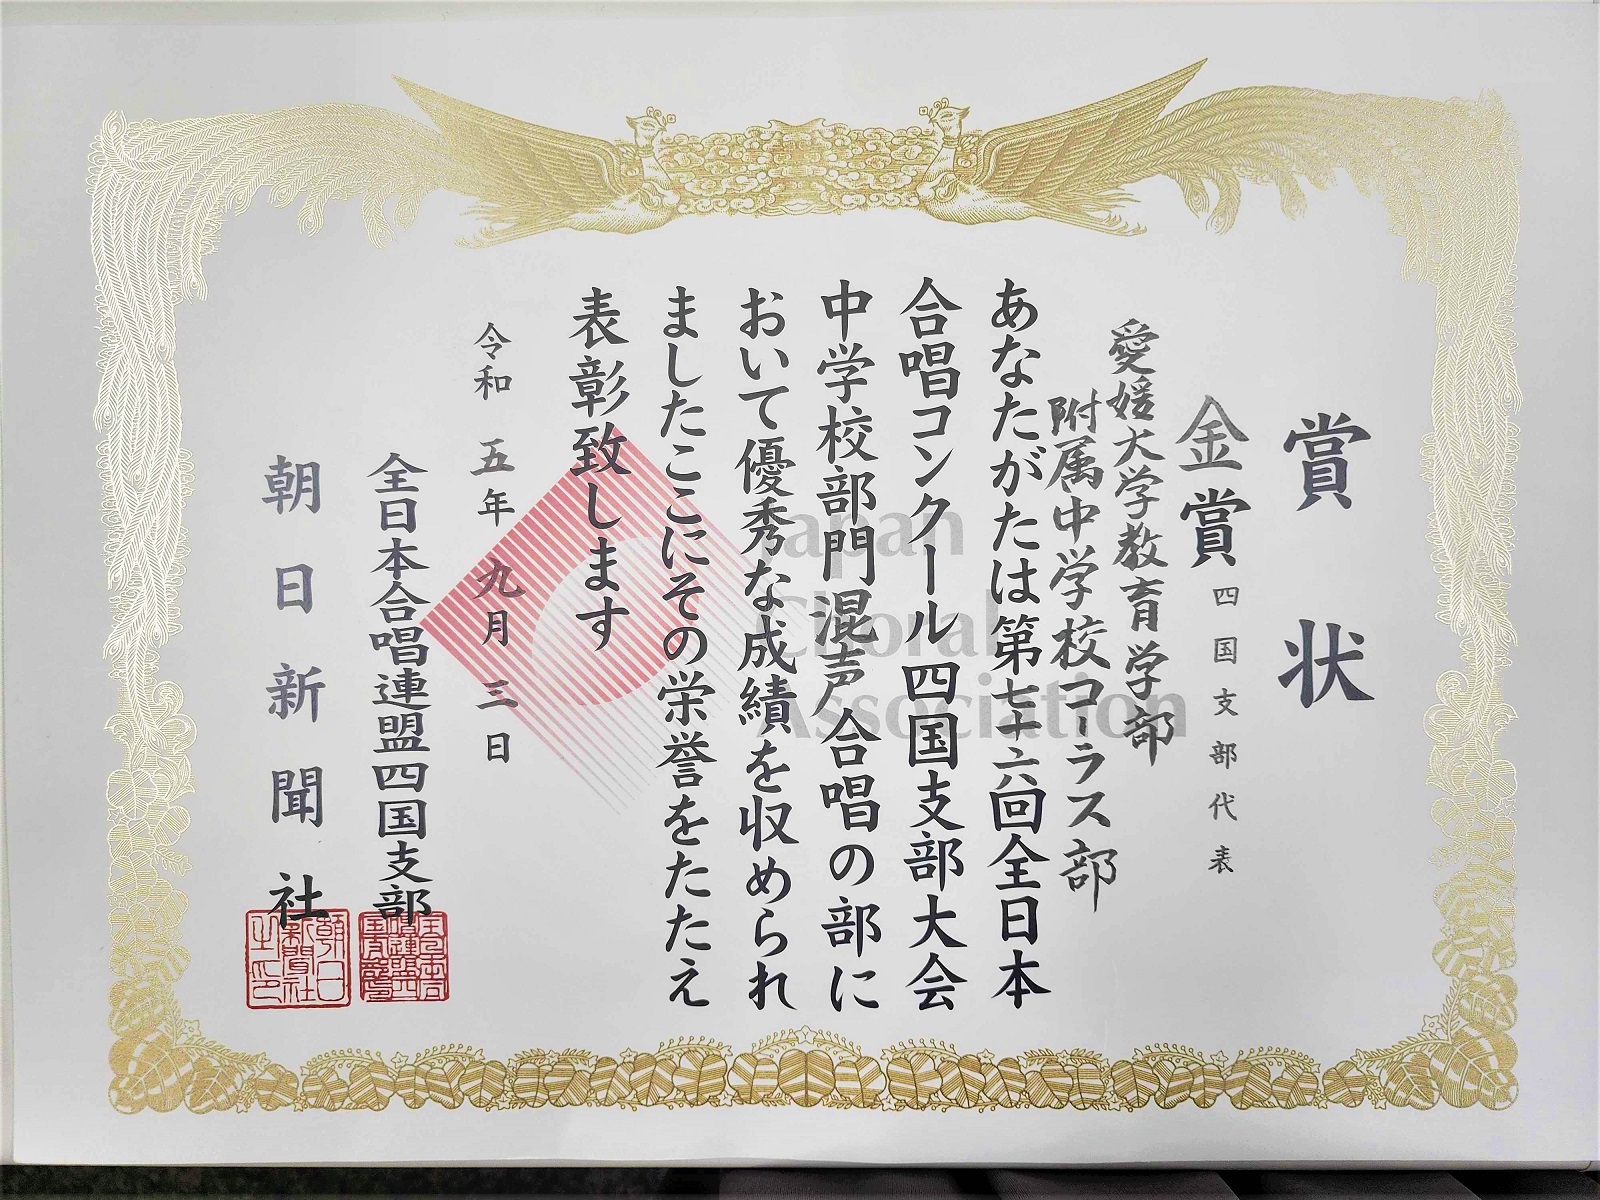 賞状
金賞 四国支部代表
愛媛大学教育学部
附属中学校コーラス部
あなたがたは第七十六回全日本
合唱コンクール四国支部大会
中学校部門混声合唱の部に
おいて優秀な成績を収められ
ましたここにその栄誉をたたえ
表彰致します
令和 五年 九月 三日
全日本合唱連盟四国支部
朝日新聞社
Japan
Choral
Association
朝日
新聞社
之印